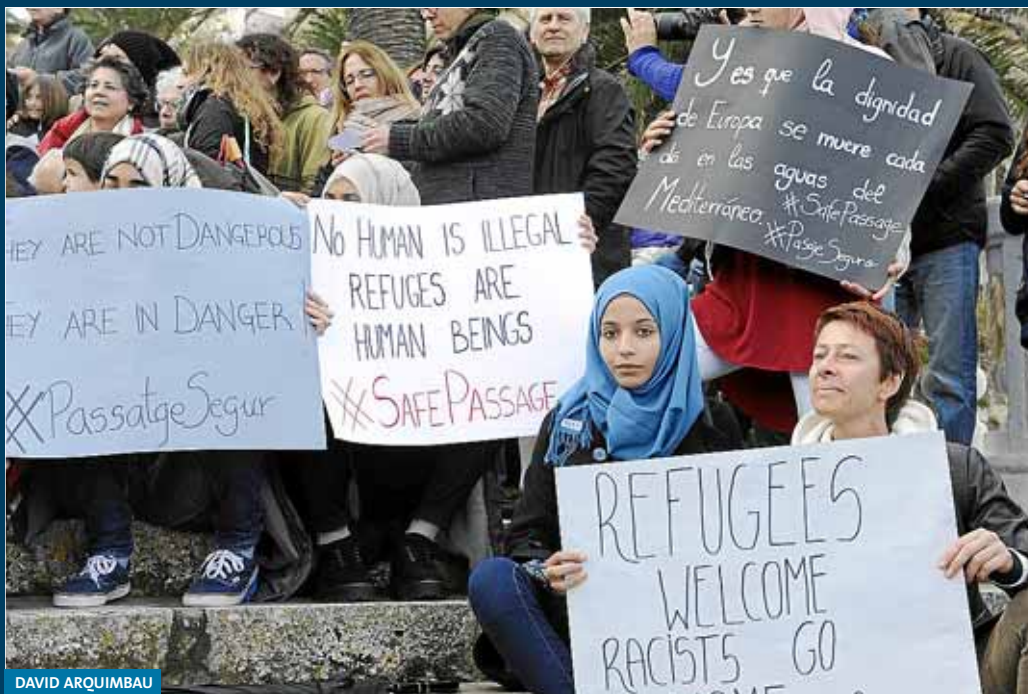 HEY ARE NOT DANGEROUS
HEY ARE IN DANGER
#PassatgeSegur
NO HUMAN IS ILLEGAL
REFUGES ARE
HUMAN BEINGS
#SAFEPASSAGE
Y es que la dignidad
de Europa se muere cada
dá en las aguas del
Mediterráneo..
#SafePassage
#PasajeSeguro
REFUGEES
WELCOME
RACISTS GO
DAVID ARQUIMBAU